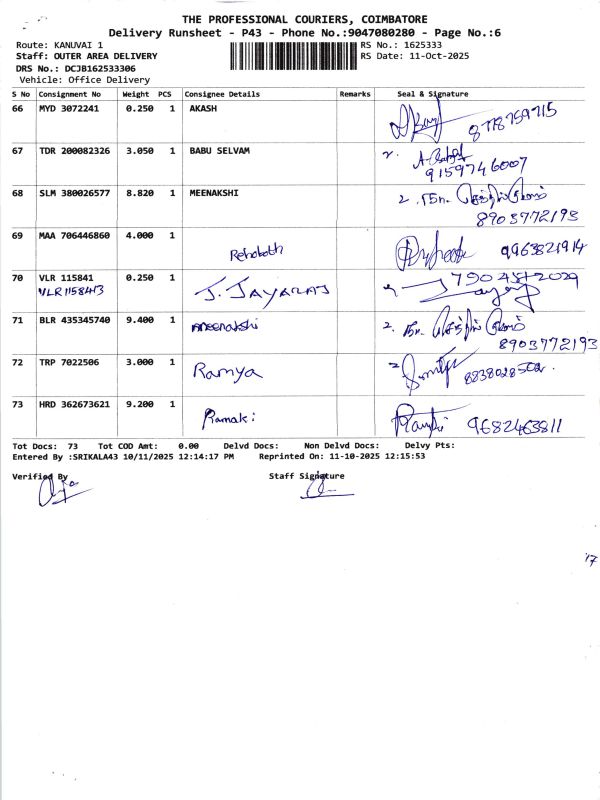 THE PROFESSIONAL COURIERS, COIMBATORE
Delivery Runsheet - P43 - Phone No.:9047080280 - Page No.:6
Route: KANUVAI 1 RS No.: 1625333
Staff: OUTER AREA DELIVERY RS Date: 11-Oct-2025
DRS No.: DCJB162533306
Vehicle: Office Delivery
S No Consignment No Weight PCS Consignee Details Remarks Seal & Signature
66 MYD 3072241 0.250 1 AKASH 8778759715
67 TDR 200082326 3.050 1 BABU SELVAM 2.
9159746007
68 SLM 380026577 8.820 1 MEENAKSHI 2.
8903772193
69 MAA 706446860 4.000 1
Rehoboth 9963821914
70 VLR 115841 0.250 1
VLR1158413 J. JAYARAJ
71 BLR 435345740 9.400 1 meenakshi 2.
8903772193
72 TRP 7022506 3.000 1 Ramya 2
8838028502
73 HRD 362673621 9.200 1
Ramaki 9682463811
Tot Docs: 73 Tot COD Amt: 0.00 Delvd Docs: Non Delvd Docs: Delvy Pts:
Entered By :SRIKALA43 10/11/2025 12:14:17 PM Reprinted On: 11-10-2025 12:15:53
Verified By Staff Signature
17